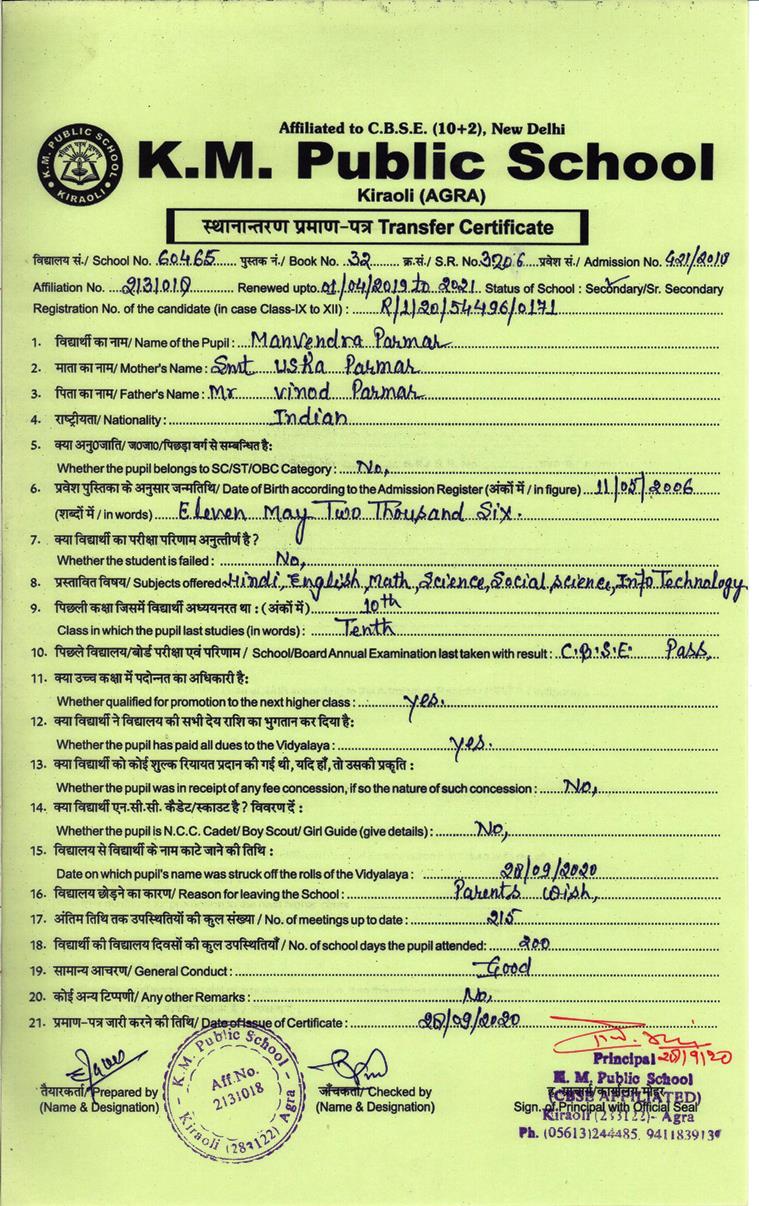 Affiliated to C.B.S.E. (10+2), New Delhi
K.M. PUBLIC SCHOOL
KIRAOLI
K.M. Public School
Kiraoli (AGRA)
स्थानान्तरण प्रमाण-पत्र Transfer Certificate
विद्यालय सं./ School No. 60465 पुस्तक नं./ Book No. 32 क्र.सं./ S.R. No. 3206 प्रवेश सं./ Admission No. 421/2018
Affiliation No. 2131018 Renewed upto 01/04/2019 to 2021 Status of School : Secondary/Sr. Secondary
Registration No. of the candidate (in case Class-IX to XII) : R/1/20/54496/0171
1. विद्यार्थी का नाम/ Name of the Pupil : Manvendra Parmar
2. माता का नाम/ Mother's Name : Smt Usha Parmar
3. पिता का नाम/ Father's Name : Mr Vinod Parmar
4. राष्ट्रीयता/ Nationality : Indian
5. क्या अनु0जाति/ ज0जा0/पिछड़ा वर्ग से सम्बन्धित है:
Whether the pupil belongs to SC/ST/OBC Category : No,
6. प्रवेश पुस्तिका के अनुसार जन्मतिथि/ Date of Birth according to the Admission Register (अंकों में / in figure) 11/05/2006
(शब्दों में / in words) Eleven May Two Thousand Six.
7. क्या विद्यार्थी का परीक्षा परिणाम अनुत्तीर्ण है ?
Whether the student is failed : No,
8. प्रस्तावित विषय/ Subjects offered Hindi, English, Math, Science, Social science, Info Technology
9. पिछली कक्षा जिसमें विद्यार्थी अध्ययनरत था : (अंकों में) 10th
Class in which the pupil last studies (in words) : Tenth
10. पिछले विद्यालय/बोर्ड परीक्षा एवं परिणाम / School/Board Annual Examination last taken with result : C.B.S.E. Pass,
11. क्या उच्च कक्षा में पदोन्नत का अधिकारी है:
Whether qualified for promotion to the next higher class : yes.
12. क्या विद्यार्थी ने विद्यालय की सभी देय राशि का भुगतान कर दिया है:
Whether the pupil has paid all dues to the Vidyalaya : yes.
13. क्या विद्यार्थी को कोई शुल्क रियायत प्रदान की गई थी, यदि हाँ, तो उसकी प्रकृति :
Whether the pupil was in receipt of any fee concession, if so the nature of such concession : No,
14. क्या विद्यार्थी एन.सी.सी. कैडेट/स्काउट है ? विवरण दें :
Whether the pupil is N.C.C. Cadet/ Boy Scout/ Girl Guide (give details) : No,
15. विद्यालय से विद्यार्थी के नाम काटे जाने की तिथि :
Date on which pupil's name was struck off the rolls of the Vidyalaya : 28/09/2020
16. विद्यालय छोड़ने का कारण/ Reason for leaving the School : Parents wish,
17. अंतिम तिथि तक उपस्थितियों की कुल संख्या / No. of meetings up to date : 215
18. विद्यार्थी की विद्यालय दिवसों की कुल उपस्थितियाँ / No. of school days the pupil attended: 200
19. सामान्य आचरण/ General Conduct : Good
20. कोई अन्य टिप्पणी/ Any other Remarks : No,
21. प्रमाण-पत्र जारी करने की तिथि/ Date of Issue of Certificate : 28/09/2020
K.M. Public School
Aff.No.
2131018
Kiraoli (283122) Agra
तैयारकर्ता/Prepared by
(Name & Designation)
जाँचकर्ता/ Checked by
(Name & Designation)
Principal 28/9/20
K. M. Public School
(CBSE AFFILIATED)
Sign. of Principal with Official Seal
Kiraoli (283122)- Agra
Ph. (05613)244485,